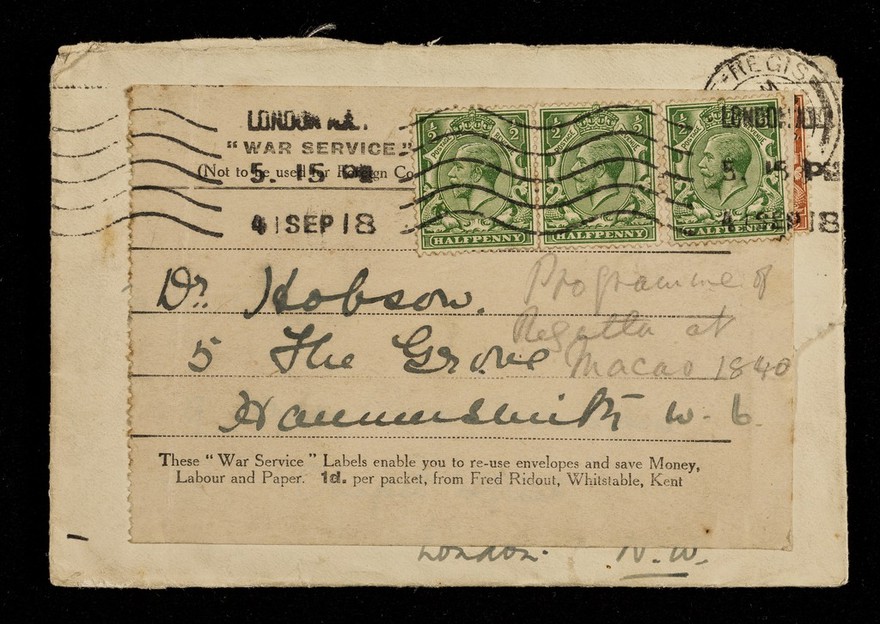 REGIS
LONDON
"WAR SERVICE"
(Not to be used for Foreign Co
5. 15 PM
4 SEP 18
LONDON
5. 15 PM
4 SEP 18
½ ½
POSTAGE REVENUE
HALFPENNY
½ ½
POSTAGE REVENUE
HALFPENNY
½
POSTAGE
HALFPENNY
Dr. Hobson.
5 The Grove
Hammersmith W. 6.
Programme of
Regatta at
Macao 1840
These "War Service" Labels enable you to re-use envelopes and save Money,
Labour and Paper. 1d. per packet, from Fred Ridout, Whitstable, Kent
London. N.W.